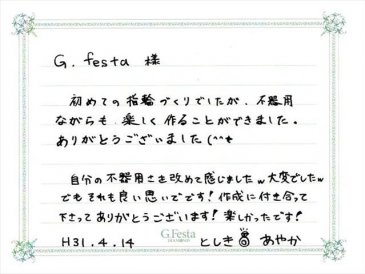 G. festa 様
初めての指輪づくりでしたが、不器用
ながらも、楽しく作ることができました。
ありがとうございました(^^*
自分の不器用さを改めて感じましたw大変でしたw
でもそれも良い思いでです!作成に付き合って
下さってありがとうございます!楽しかったです!
G.Festa
DIAMOND
H31.4.14 としき あやか